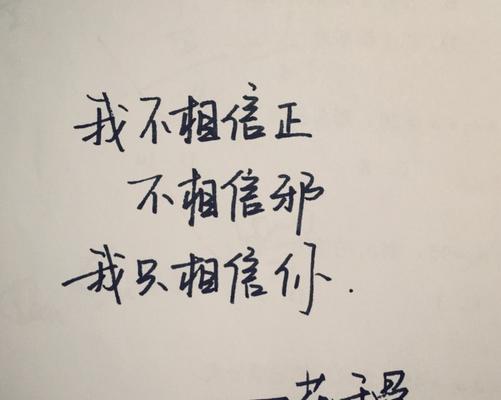 我不相信正
不相信邪
我只相信你.